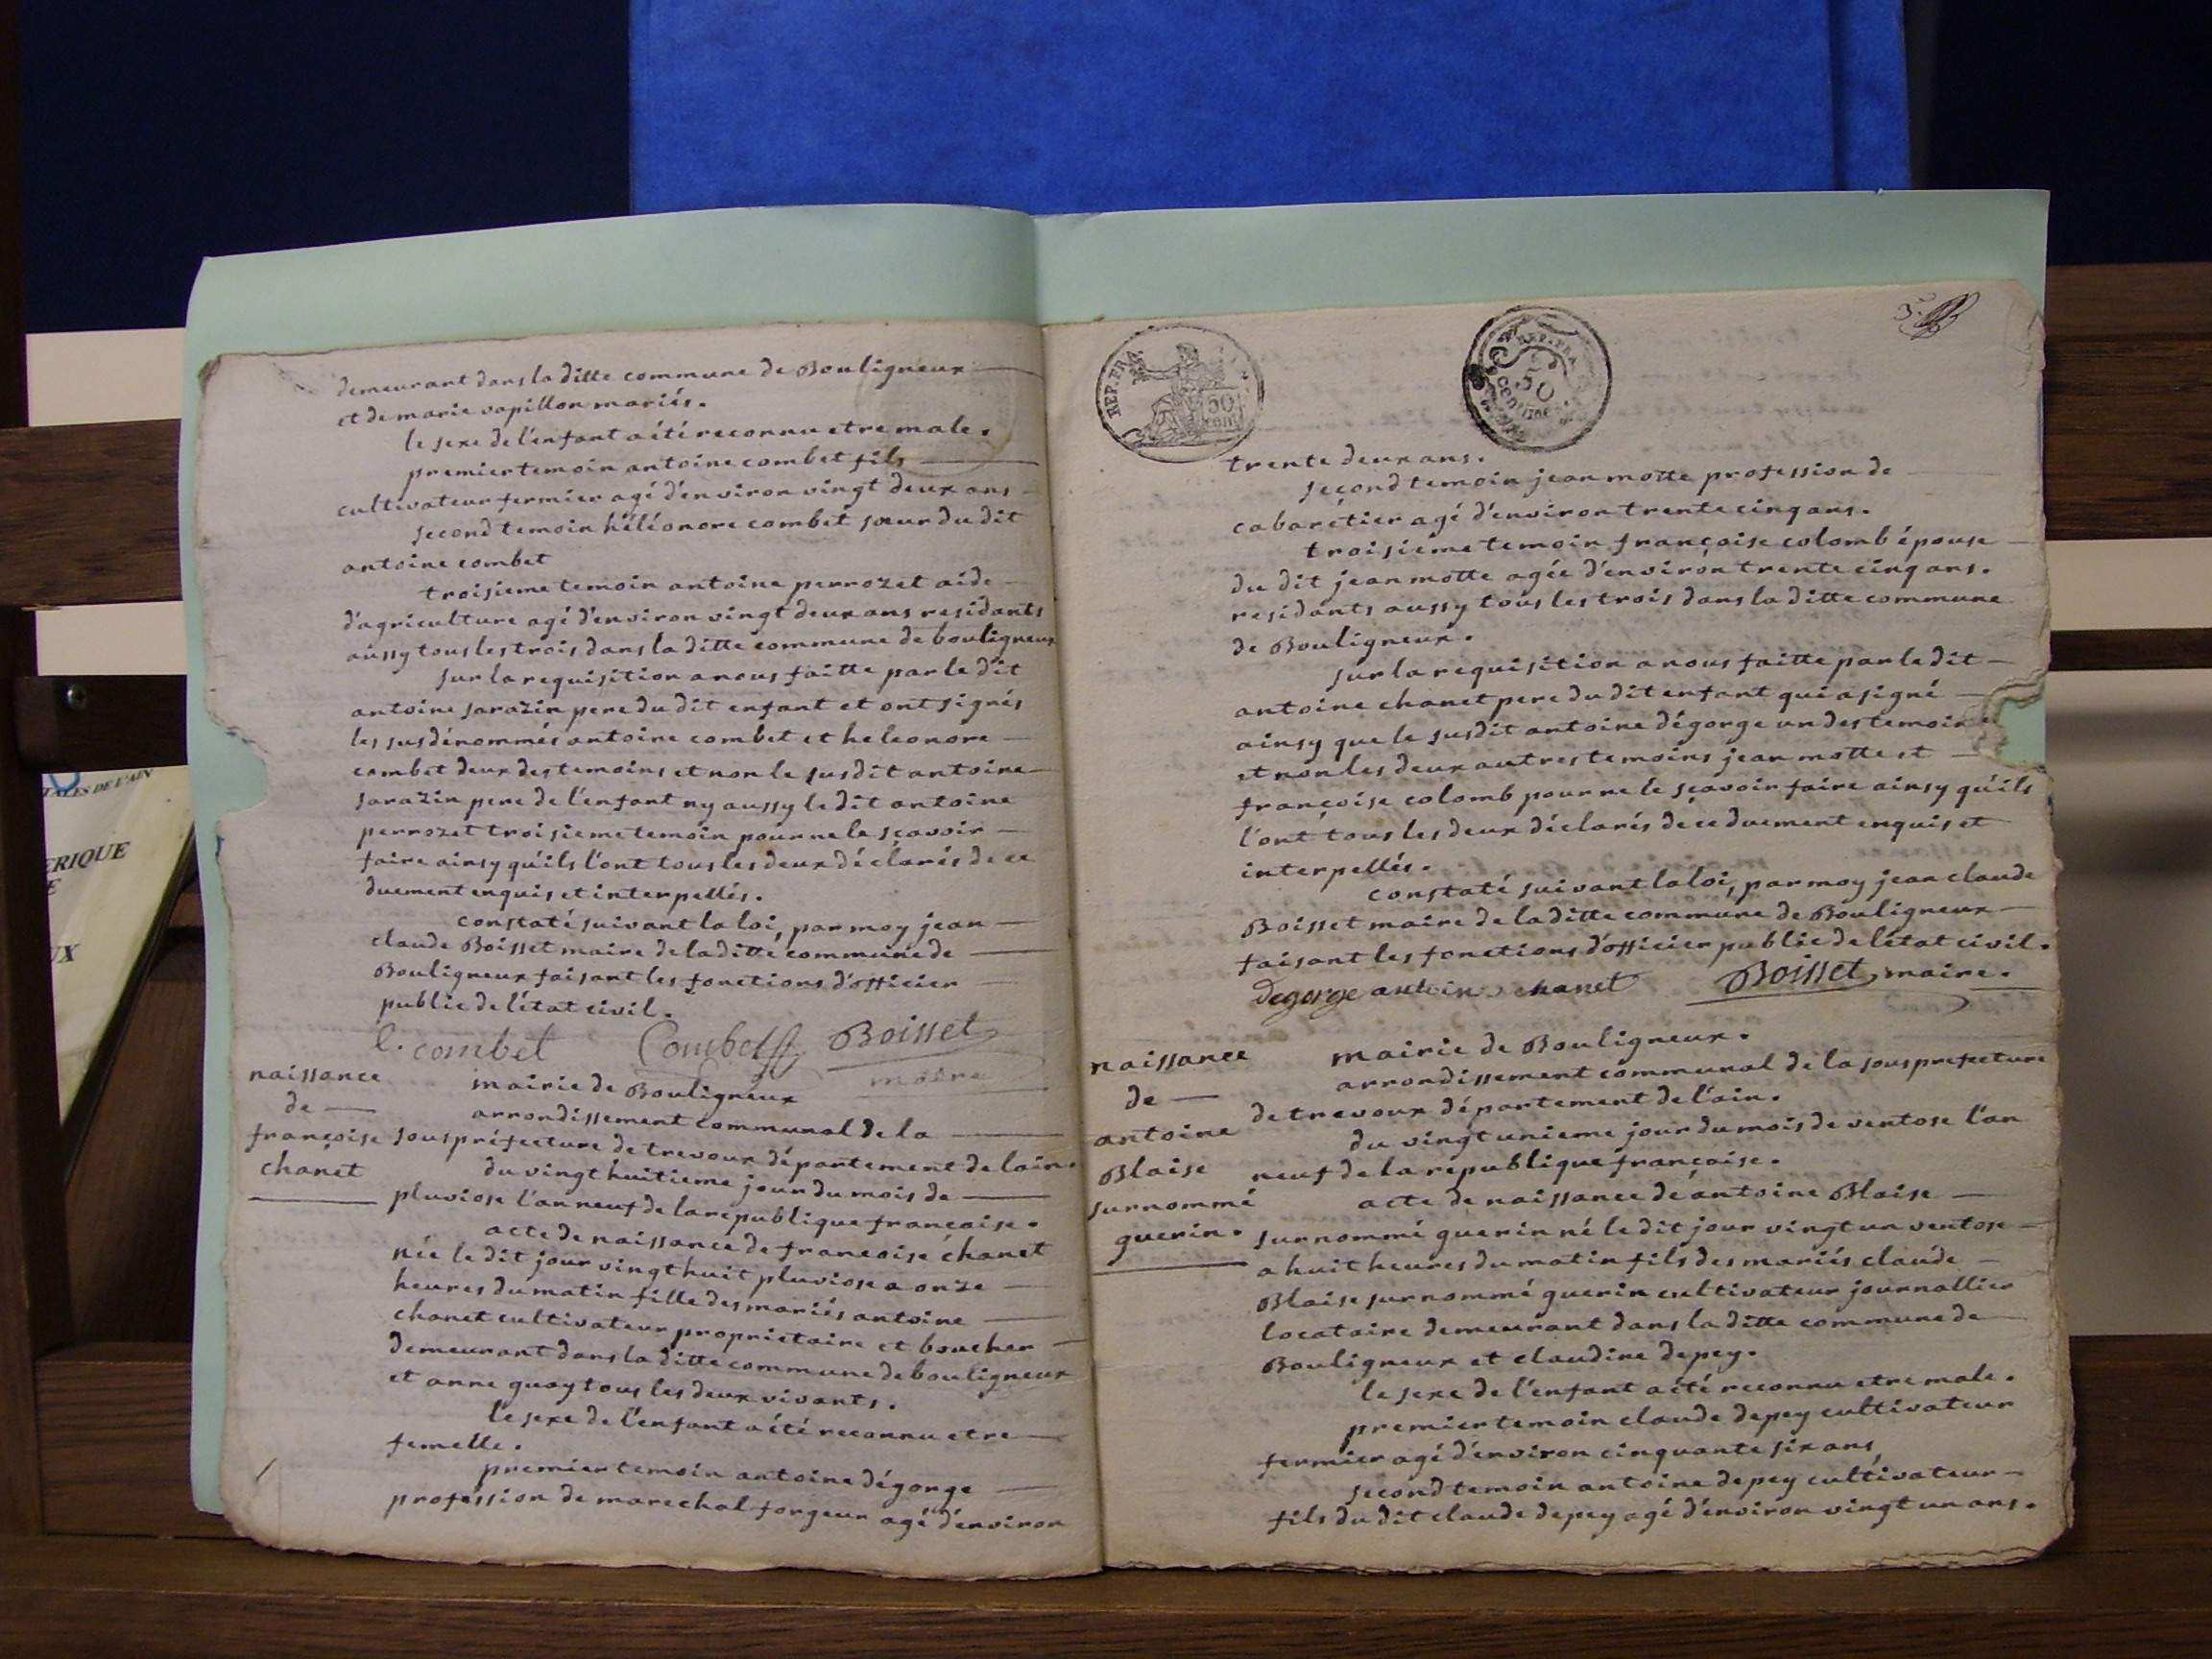 demeurant dans la ditte commune de Bouligneux
et de marie vapillon mariés.
le sexe de l'enfant a été reconnu etre male.
premier temoin antoine combet fils
cultivateur fermier agé d'environ vingt deux ans
second temoin héléonore combet sœur du dit
antoine combet
troisieme temoin antoine perrozet aide
d'agriculture agé d'environ vingt deux ans residants
aussy tous les trois dans la ditte commune de bouligneux
sur la requisition a nous faitte par le dit
antoine sarazin pere du dit enfant et ont signés
les susdénommés antoine combet et heleonore
combet deux des temoins et non le susdit antoine
sarazin pere de l'enfant ny aussy le dit antoine
perrozet troisieme temoin pour ne le sçavoir
faire ainsy qu'ils l'ont tous les deux déclarés de ce
duement enquis et interpellés.
constaté suivant la loi, par moy jean
claude Boisset maire de la ditte commune de
Bouligneux faisant les fonctions d'officier
public de l'état civil.
combet Combet Boisset
maire
naissance
de
françoise
chanet
mairie de Bouligneux
arrondissement communal de la
sous préfecture de trevoux département de lain.
du vingt huitieme jour du mois de
pluviose l'an neuf de la république françaisse.
acte de naissance de francoise chanet
née le dit jour vingt huit pluviose a onze
heures du matin fille des mariés antoine
chanet cultivateur propriétaire et boucher
demeurant dans la ditte commune de bouligneux
et anne guoy tous les deux vivants.
le sexe de l'enfant a été reconnu etre
femelle.
premier temoin antoine dégorge
profession de marechal forgeur agé d'environ
REP. FRA.
50
cent
REP. FRA.
50
centimes
3
trente deux ans.
second temoin jean motte profession de
cabarétier agé d'environ trente cinq ans.
troisieme temoin françoise colomb épouse
du dit jean motte agée d'environ trente cinq ans.
residants aussy tous les trois dans la ditte commune
de Bouligneux.
sur la requisition a nous faitte par le dit
antoine chanet pere du dit enfant qui a signé
ainsy que le susdit antoine dégorge un des temoins
et non les deux autres temoins jean motte et
françoise colomb pour ne le sçavoir faire ainsy qu'ils
l'ont tous les deux déclarés de ce duement enquis et
interpellés.
constaté suivant la loi, par moy jean claude
Boisset maire de la ditte commune de Bouligneux
faisant les fonctions d'officier public de l'état civil.
degorge antoine chanet Boisset, maire.
naissance
de
antoine
Blaise
surnommé
guerin.
mairie de Bouligneux.
arrondissement communal de la sous prefecture
de trevoux département de l'ain.
du vingt unieme jour du mois de ventose l'an
neuf de la république françoise.
acte de naissance de antoine Blaise
surnommé guerin né le dit jour vingt un ventose
a huit heures du matin fils des mariés claude
Blaise surnommé guerin cultivateur journallier
locataire demeurant dans la ditte commune de
Bouligneux et claudine depey.
le sexe de l'enfant a été reconnu etre male.
premier temoin claude depey cultivateur
fermier agé d'environ cinquante six ans,
second temoin antoine depey cultivateur
fils du dit claude depey agé d'environ vingt un ans.